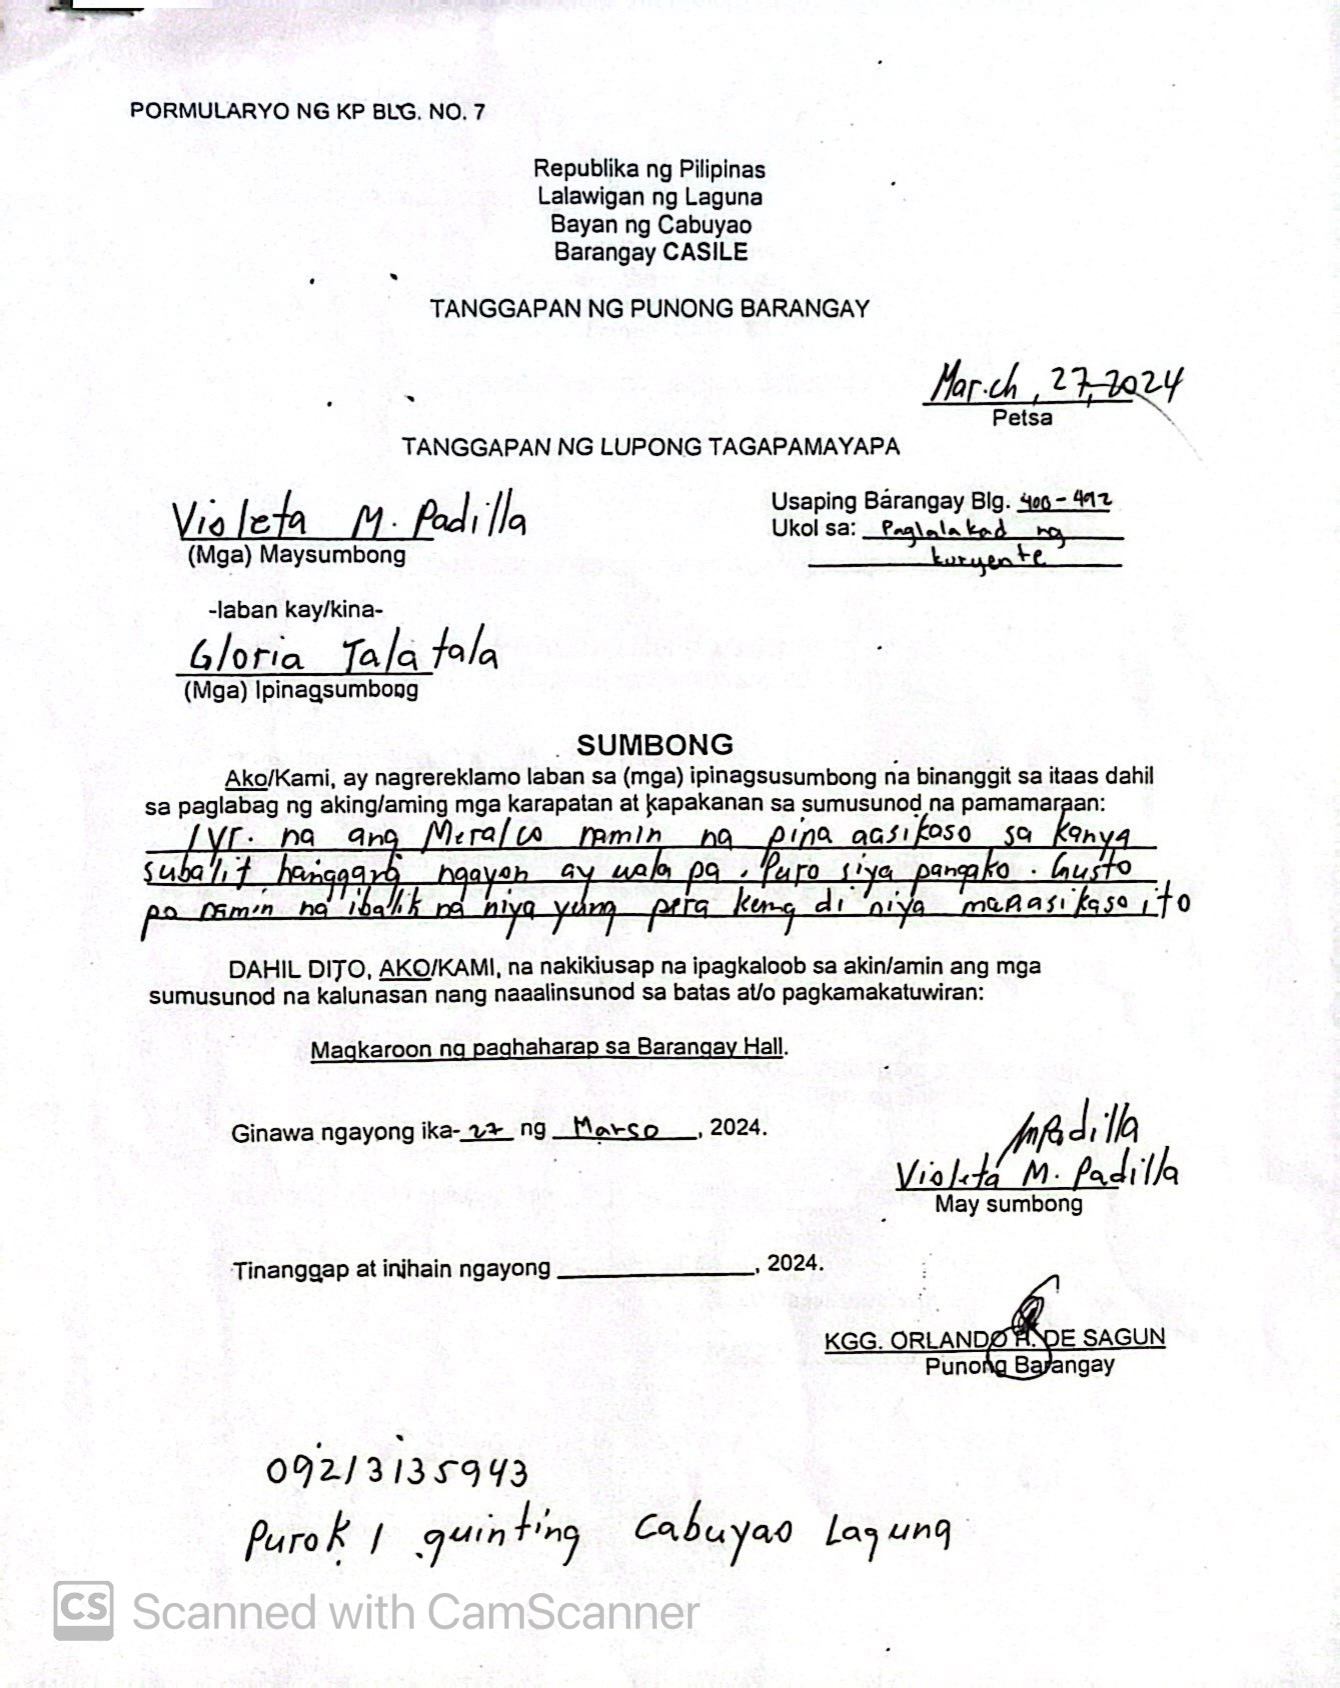 PORMULARYO NG KP BLG. NO. 7
Republika ng Pilipinas
Lalawigan ng Laguna
Bayan ng Cabuyao
Barangay CASILE
TANGGAPAN NG PUNONG BARANGAY
March, 27, 2024
Petsa
TANGGAPAN NG LUPONG TAGAPAMAYAPA
Violeta M. Padilla
(Mga) Maysumbong
Usaping Barangay Blg. 400-492
Ukol sa: Paglalakad ng
kuryente
-laban kay/kina-
Gloria Talatala
(Mga) Ipinagsumbong
SUMBONG
Ako/Kami, ay nagrereklamo laban sa (mga) ipinagsusumbong na binanggit sa itaas dahil
sa paglabag ng aking/aming mga karapatan at kapakanan sa sumusunod na pamamaraan:
1 yr. na ang Meralco namin na pina aasikaso sa kanya
subalit hanggang ngayon ay wala pa. Puro siya pangako. Gusto
po namin na ibalik na niya yung pera kung di niya maaasikaso ito
DAHIL DITO, AKO/KAMI, na nakikiusap na ipagkaloob sa akin/amin ang mga
sumusunod na kalunasan nang naaalinsunod sa batas at/o pagkamakatuwiran:
Magkaroon ng paghaharap sa Barangay Hall.
Ginawa ngayong ika-27 ng Marso, 2024.
Violeta M. Padilla
May sumbong
Tinanggap at inihain ngayong ____________, 2024.
KGG. ORLANDO H. DE SAGUN
Punong Barangay
09213135943
Purok 1 quinting Cabuyao Laguna
CS Scanned with CamScanner